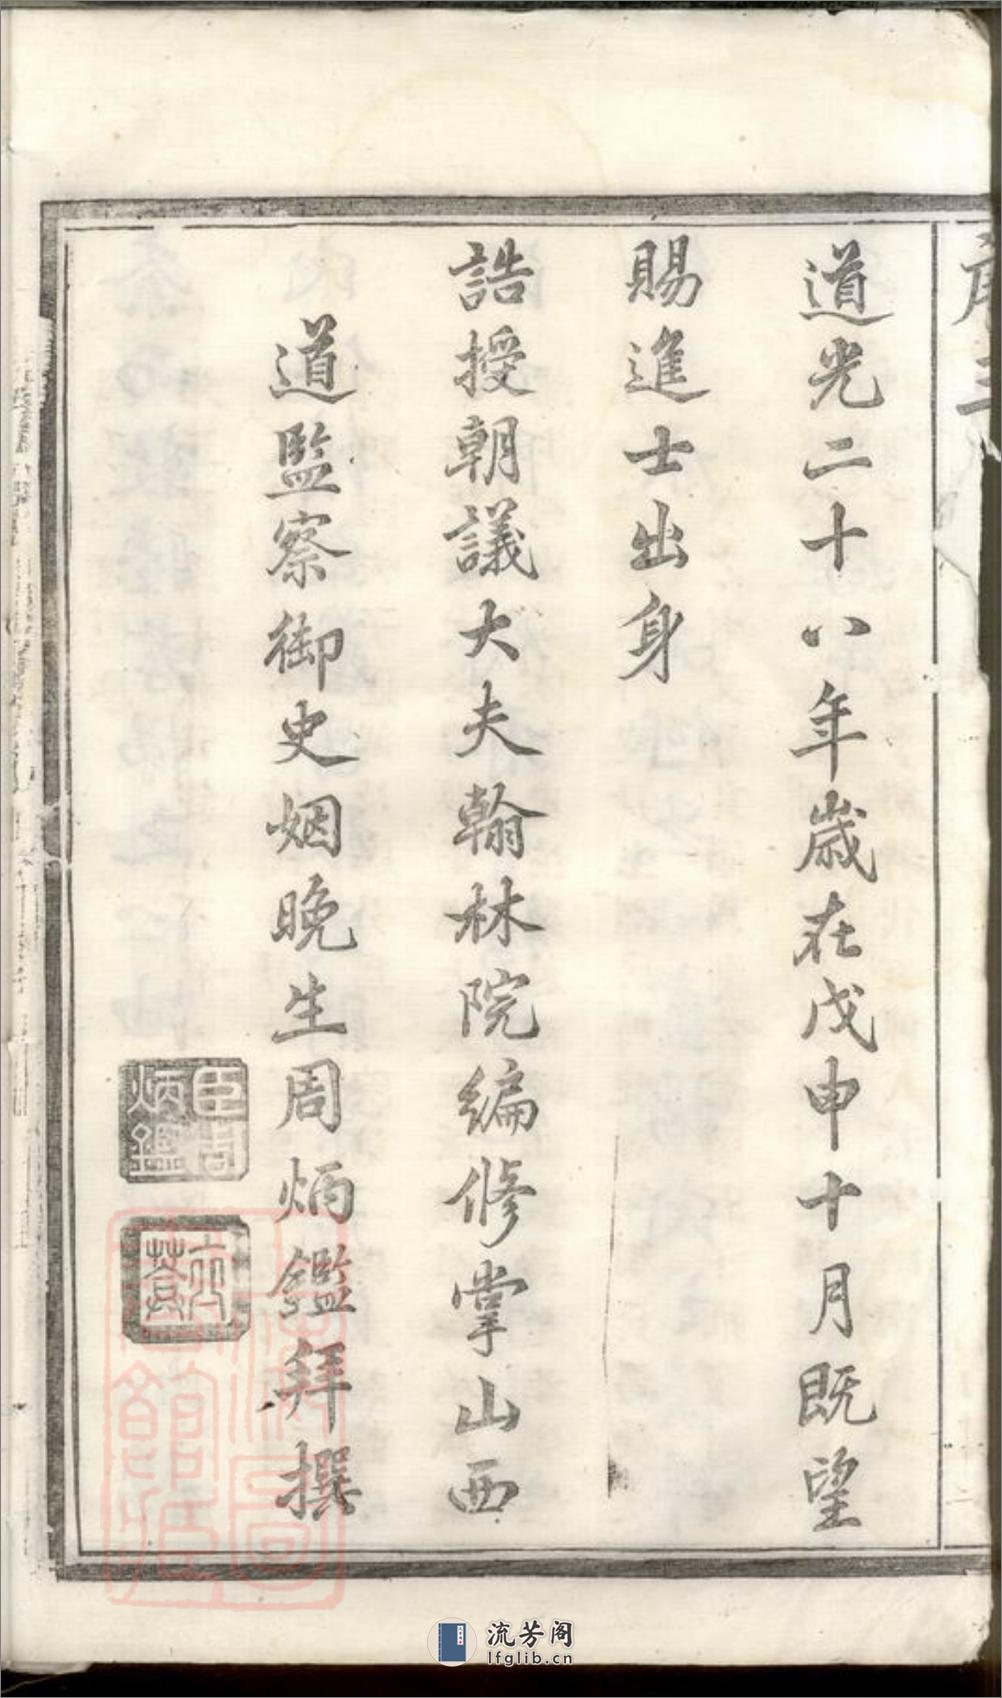 道光二十八年歲在戊申十月既望
賜進士出身
誥授朝議大夫翰林院編修掌山西
道監察御史姻晚生周炳鑑拜撰
臣周炳鑑
流芳阁
lfglib.cn